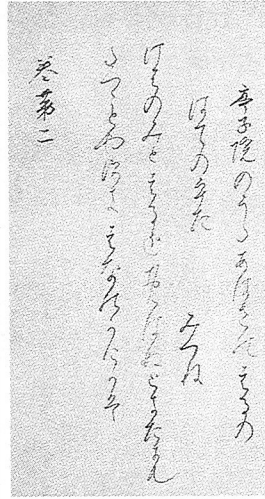 亭子院のうたあはせにはるの
はてのうた
みつね
けふのみとはるをおもはぬときたにも
たつことやすきはなのかけかは
巻第二